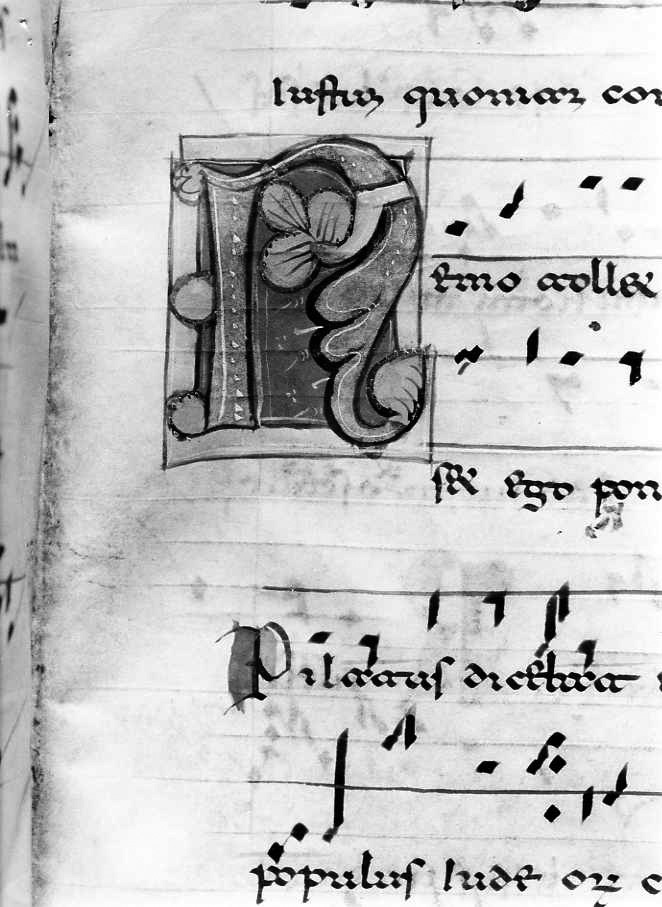 iustuʒ quoniaʒ con
Nemo tollet
set ego pon
Pilatus dicebat
populus iude oꝝ c